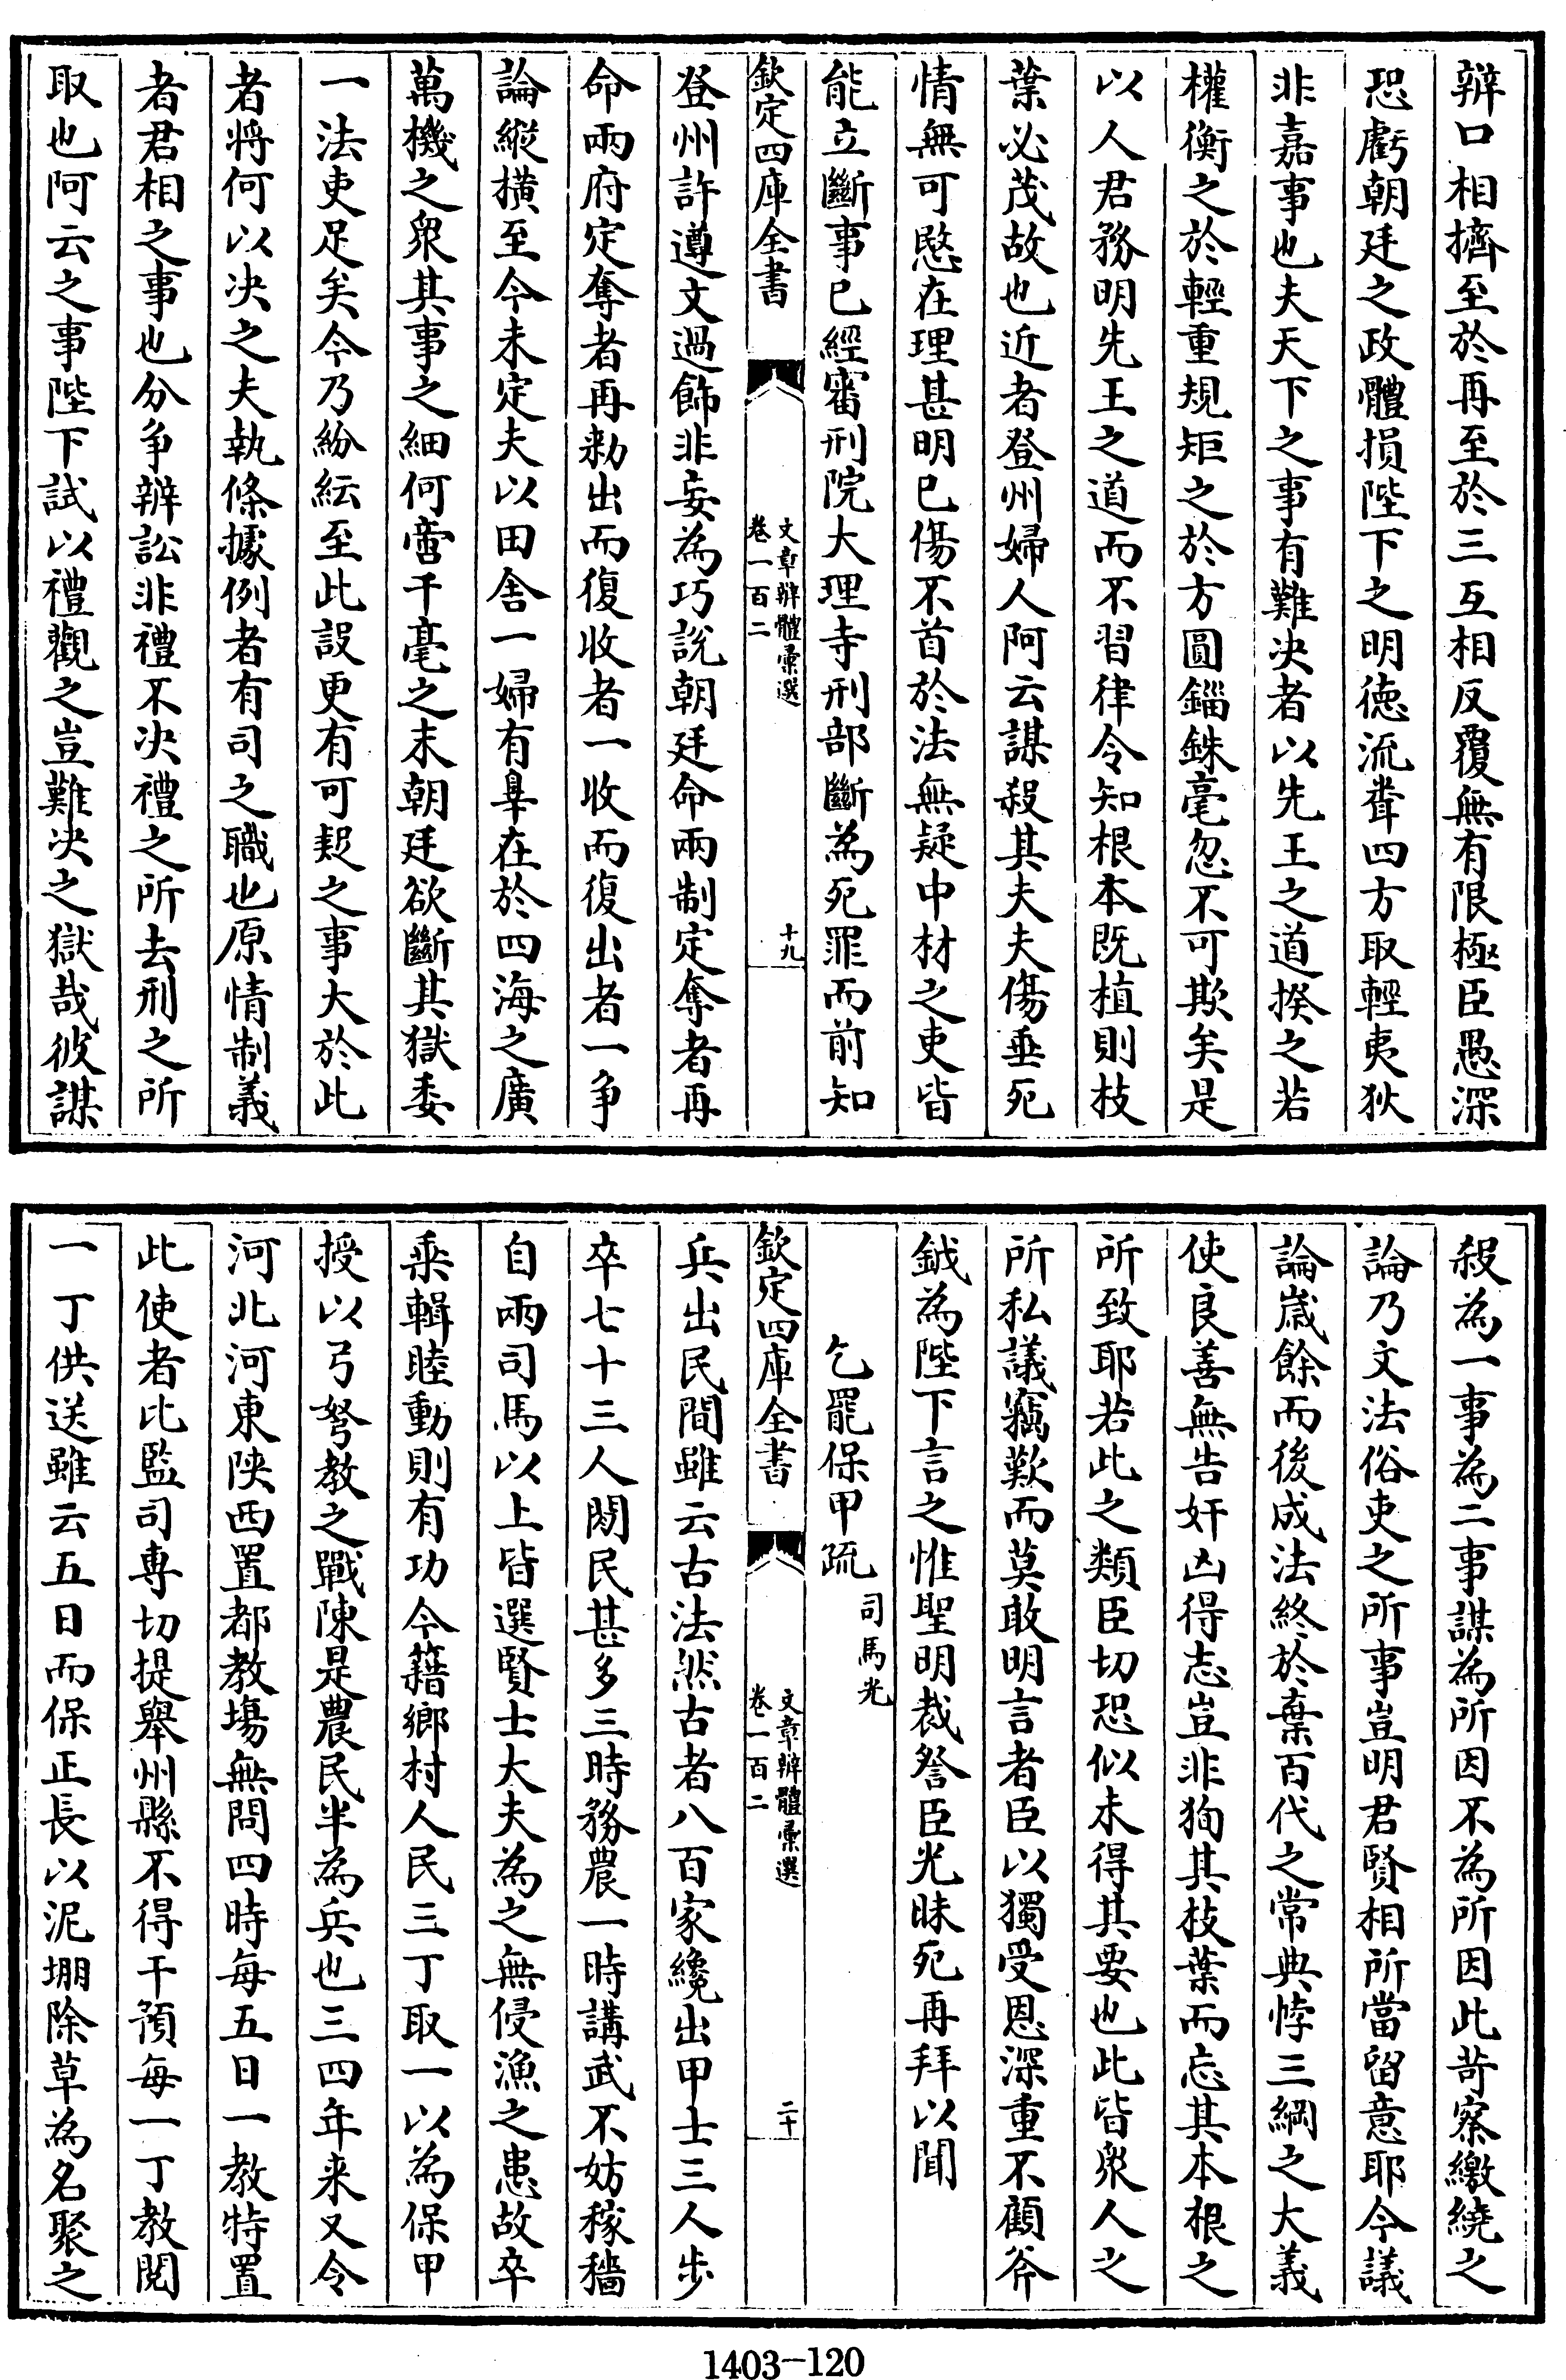 辯口相擠至於再至於三互相反覆無有限極臣愚深
恐虧朝廷之政體損陛下之明徳流聾四方取輕夷狄
非嘉事也夫天下之事有難決者以先王之道揆之若
權衡之於輕重規矩之於方圓錙銖毫忽不可欺矣是
以人君務明先王之道而不習律令知根本既植則枝
葉必茂故也近者登州婦人阿云謀殺其夫夫傷垂死
情無可愍在理甚明已傷不首於法無疑中材之吏皆
能立斷事已經審刑院大理寺刑部斷為死罪而前知
欽定四庫全書
文章辨體彚選
卷一百二
十九
登州許遵文過飾非妄為巧說朝廷命兩制定奪者再
命兩府定奪者再勑出而復收者一收而復出者一爭
論縱橫至今未定夫以田舍一婦有辠在於四海之廣
萬機之衆其事之細何啻千毫之末朝廷欲斷其獄委
一法吏足矣今乃紛紜至此設更有可疑之事大於此
者將何以決之夫執條據例者有司之職也原情制義
者君相之事也分爭辨訟非禮不決禮之所去刑之所
取也阿云之事陛下試以禮觀之豈難決之獄哉彼謀
殺為一事為二事謀為所因不為所因此苛察繳繞之
論乃文法俗吏之所事豈明君賢相所當留意耶今議
論嵗餘而後成法終於棄百代之常典悖三綱之大義
使良善無告奸凶得志豈非狥其枝葉而忘其本根之
所致耶若此之類臣切恐似未得其要也此皆衆人之
所私議竊歎而莫敢明言者臣以獨受恩深重不顧斧
鉞為陛下言之惟聖明裁詧臣光昧死再拜以聞
乞罷保甲疏
司馬光
欽定四庫全書
文章辨體彚選
卷一百二
二十
兵出民間雖云古法然古者八百家纔出甲士三人步
卒七十三人閑民甚多三時務農一時講武不妨稼穡
自兩司馬以上皆選賢士大夫為之無侵漁之患故卒
乗輯睦動則有功今籍鄉村人民三丁取一以為保甲
授以弓弩教之戰陳是農民半為兵也三四年来又令
河北河東陝西置都教塲無問四時每五日一教特置
此使者比監司專切提舉州縣不得干預每一丁教閲
一丁供送雖云五日而保正長以泥堋除草為名聚之
1403-120